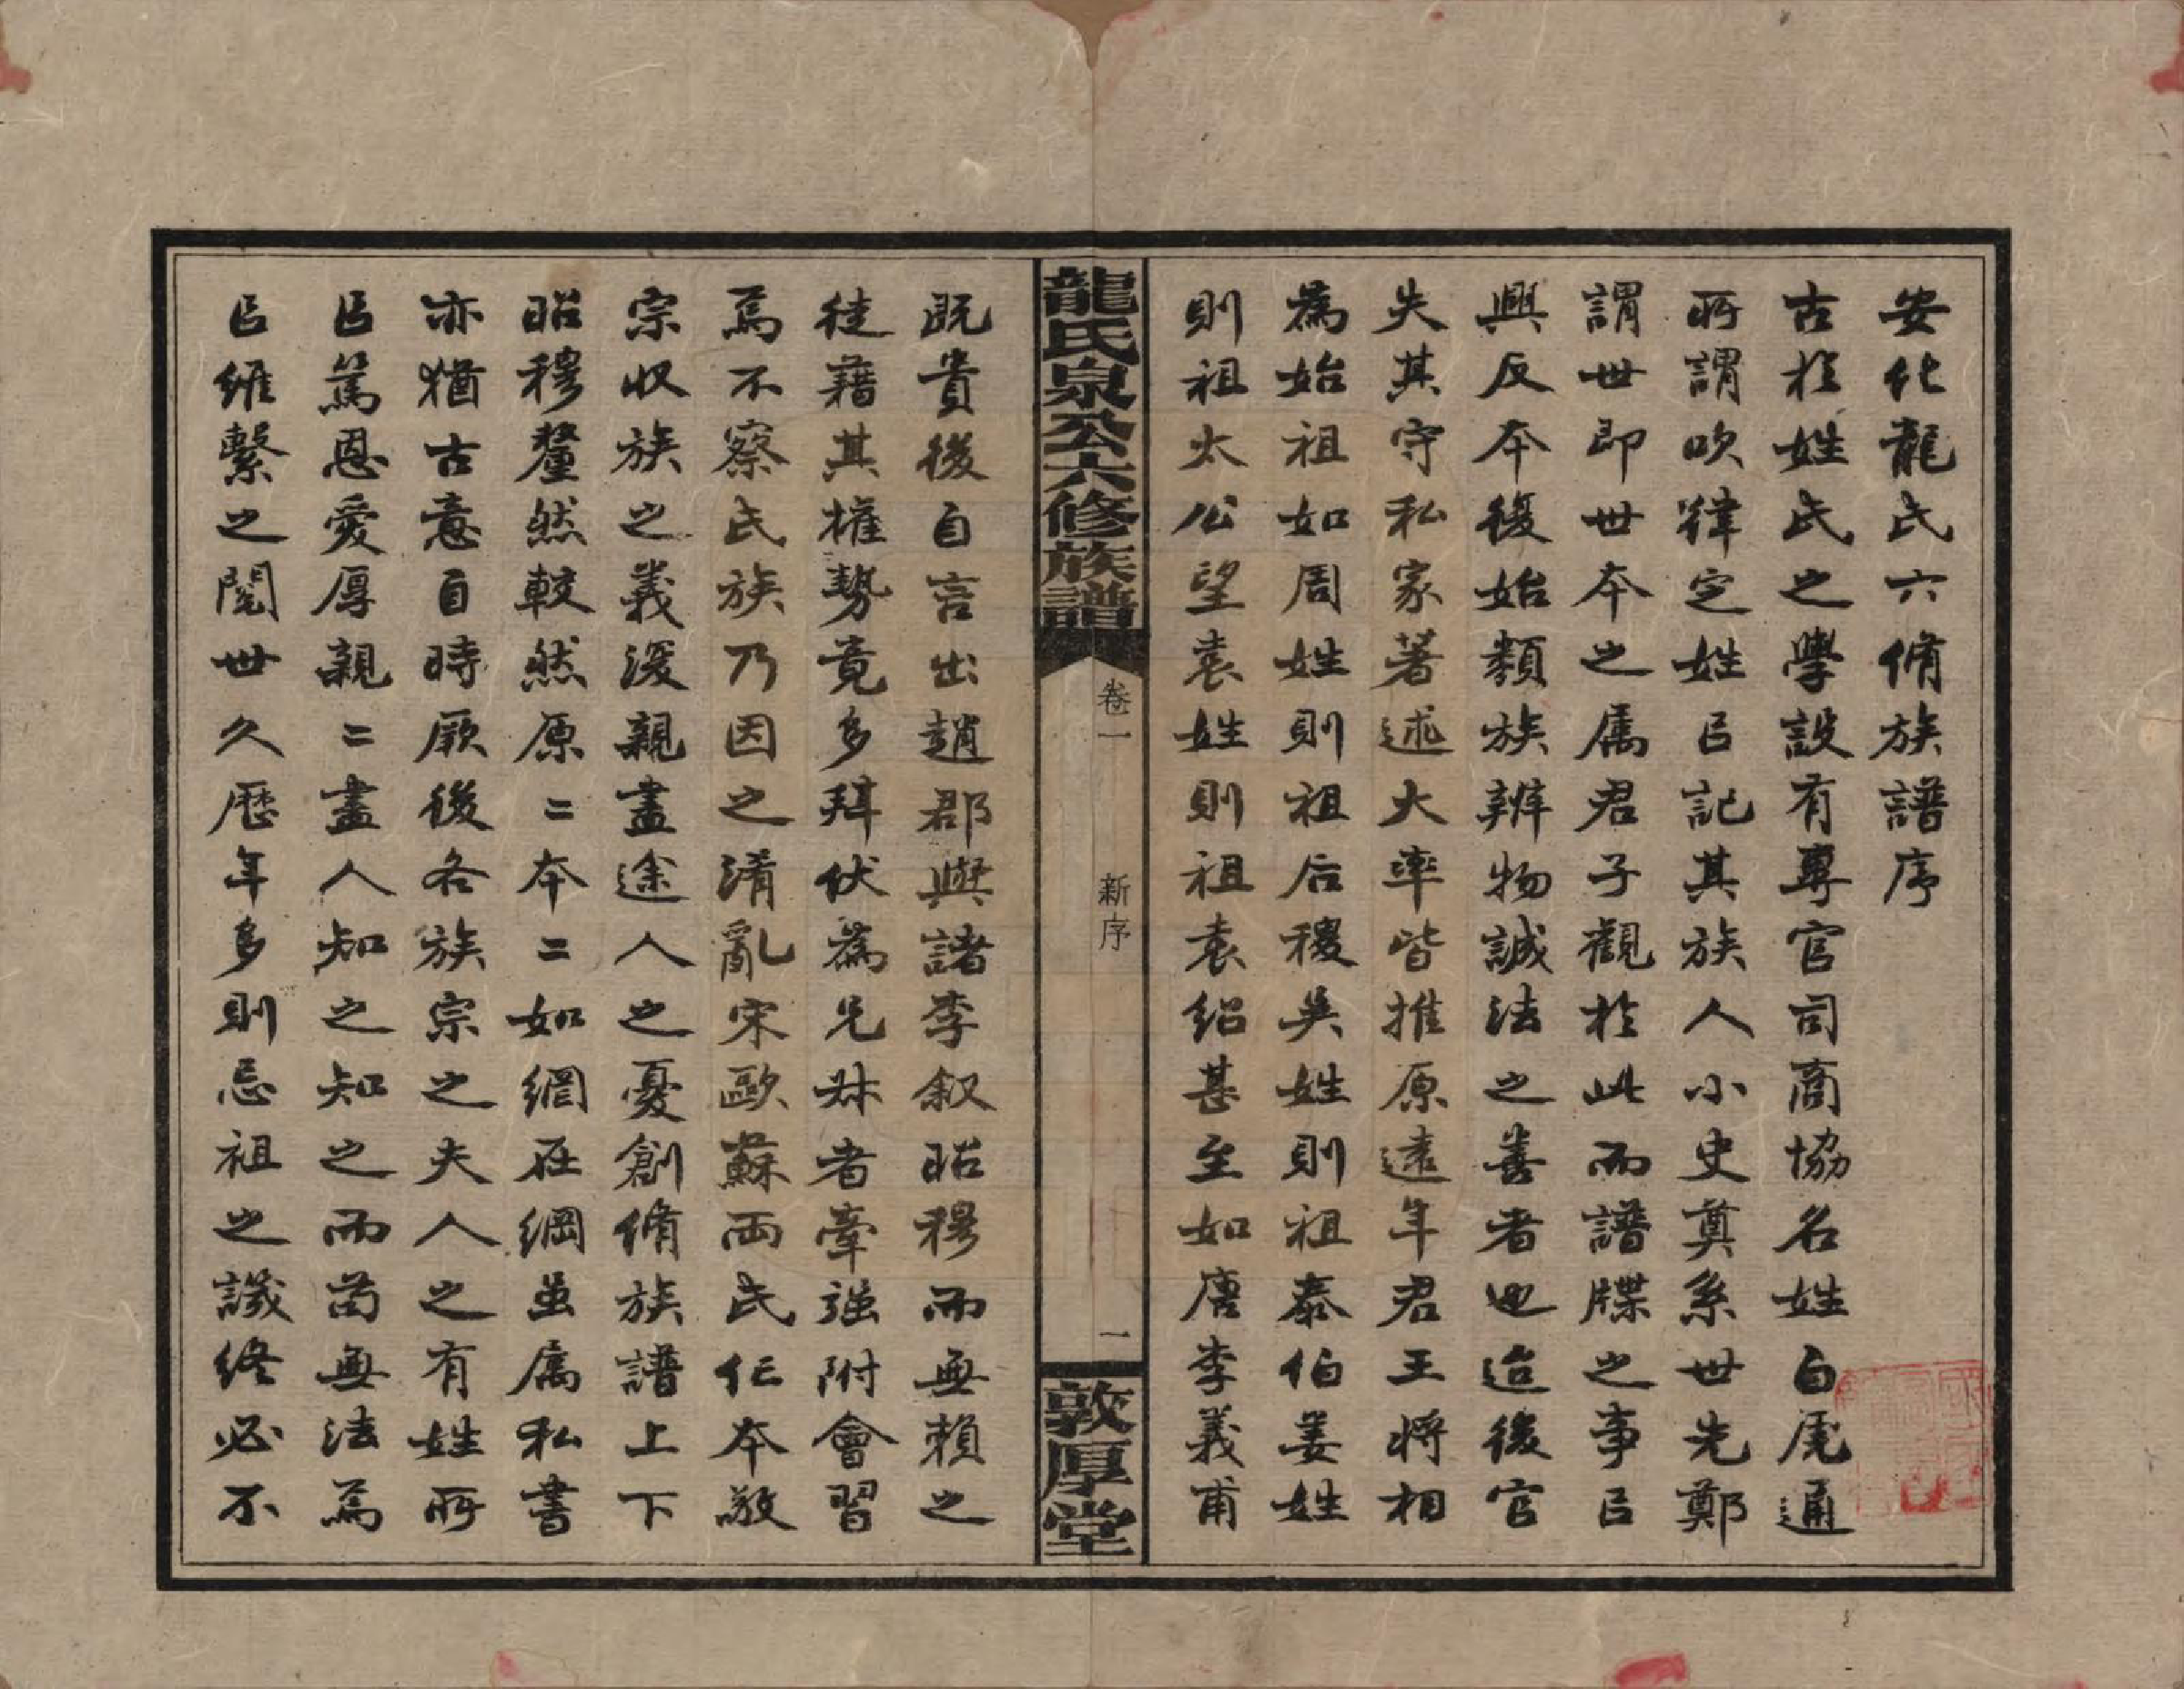 安化龍氏六脩族譜序
古於姓氏之學設有專官司商協名姓白虎通
所謂吹律定姓㠯記其族人小史奠系世先鄭
謂世即世本之属君子觀於此而譜牒之事㠯
興反本復始類族辨物誠法之善者也迨後官
失其守私家著述大率皆推原遠年君王將相
為始祖如周姓則祖后稷吳姓則祖泰伯姜姓
則祖太公望袁姓則祖袁紹甚至如唐李義甫
龍氏泉公六修族譜
卷一
新序
一
敦厚堂
既貴後自言出趙郡與諸李叙昭穆而無賴之
徒藉其權勢竟多拜伏為兄叔者牽强附會習
焉不察氏族乃因之淆亂宋歐蘇兩氏仁本敬
宗收族之義深親盡途人之憂創脩族譜上下
昭穆釐然較然原二本二如網在綱虽属私書
亦猶古意自時厥後各族宗之夫人之有姓所
㠯篤恩愛厚親二盡人知之知之而苟無法焉
㠯維繫之閱世久歷年多則忘祖之譏終必不